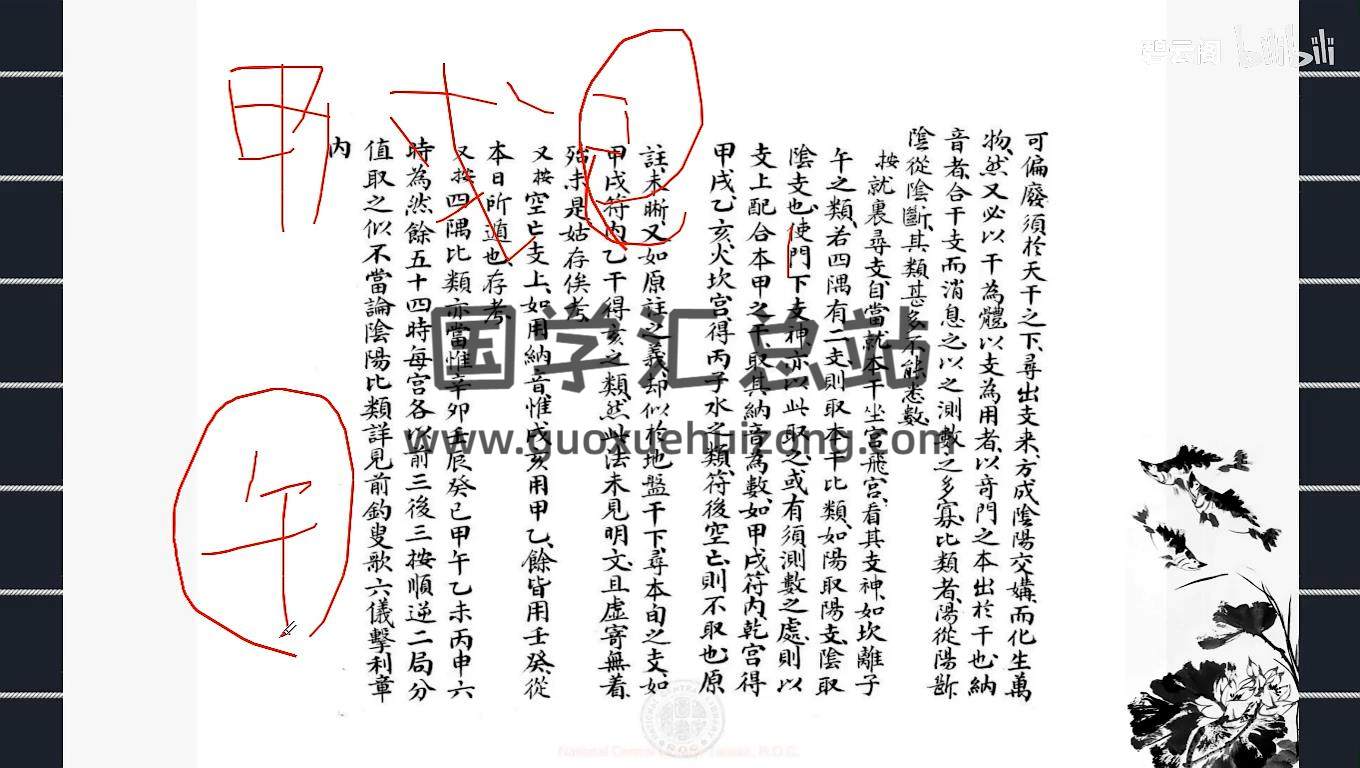 可偏廢須於天干之下尋出支来方成陰陽交媾而化生萬
物然又必以干為體以支為用者以奇門之本出於干也納
音者合干支而消息之以之測數之多寡比類者陽從陽斷
陰從陰斷其類甚多不能悉數
按就裏尋支自當就本干坐宫飛宫看其支神如坎離子
午之類若四隅有二支則取本干比類如陽取陽支陰取
陰支也使門下支神亦以此取之或有須測數之處則以
支上配合本甲之干取其納音為數如甲戌符内乾宫得
甲戌乙亥火坎宫得丙子水之類符後空亡則不取也原
註未晰又如原註之義却似於地盤干下尋本旬之支如
甲戌符内乙干得亥之類然此法未見明文且虚寄無着
殆未是姑存俟考
又按空亡支上如用納音惟戌亥用甲乙餘皆用壬癸從
本日所遁也存考
又按四隅比類亦當惟辛卯壬辰癸巳甲午乙未丙申六
時為然餘五十四時每宫各以前三後三按順逆二局分
值取之似不當論陰陽比類詳見前釣叟歌六儀擊利章
内
甲
午
国学汇总站
www.guoxuehuizong.com
碧云阁 bilibili